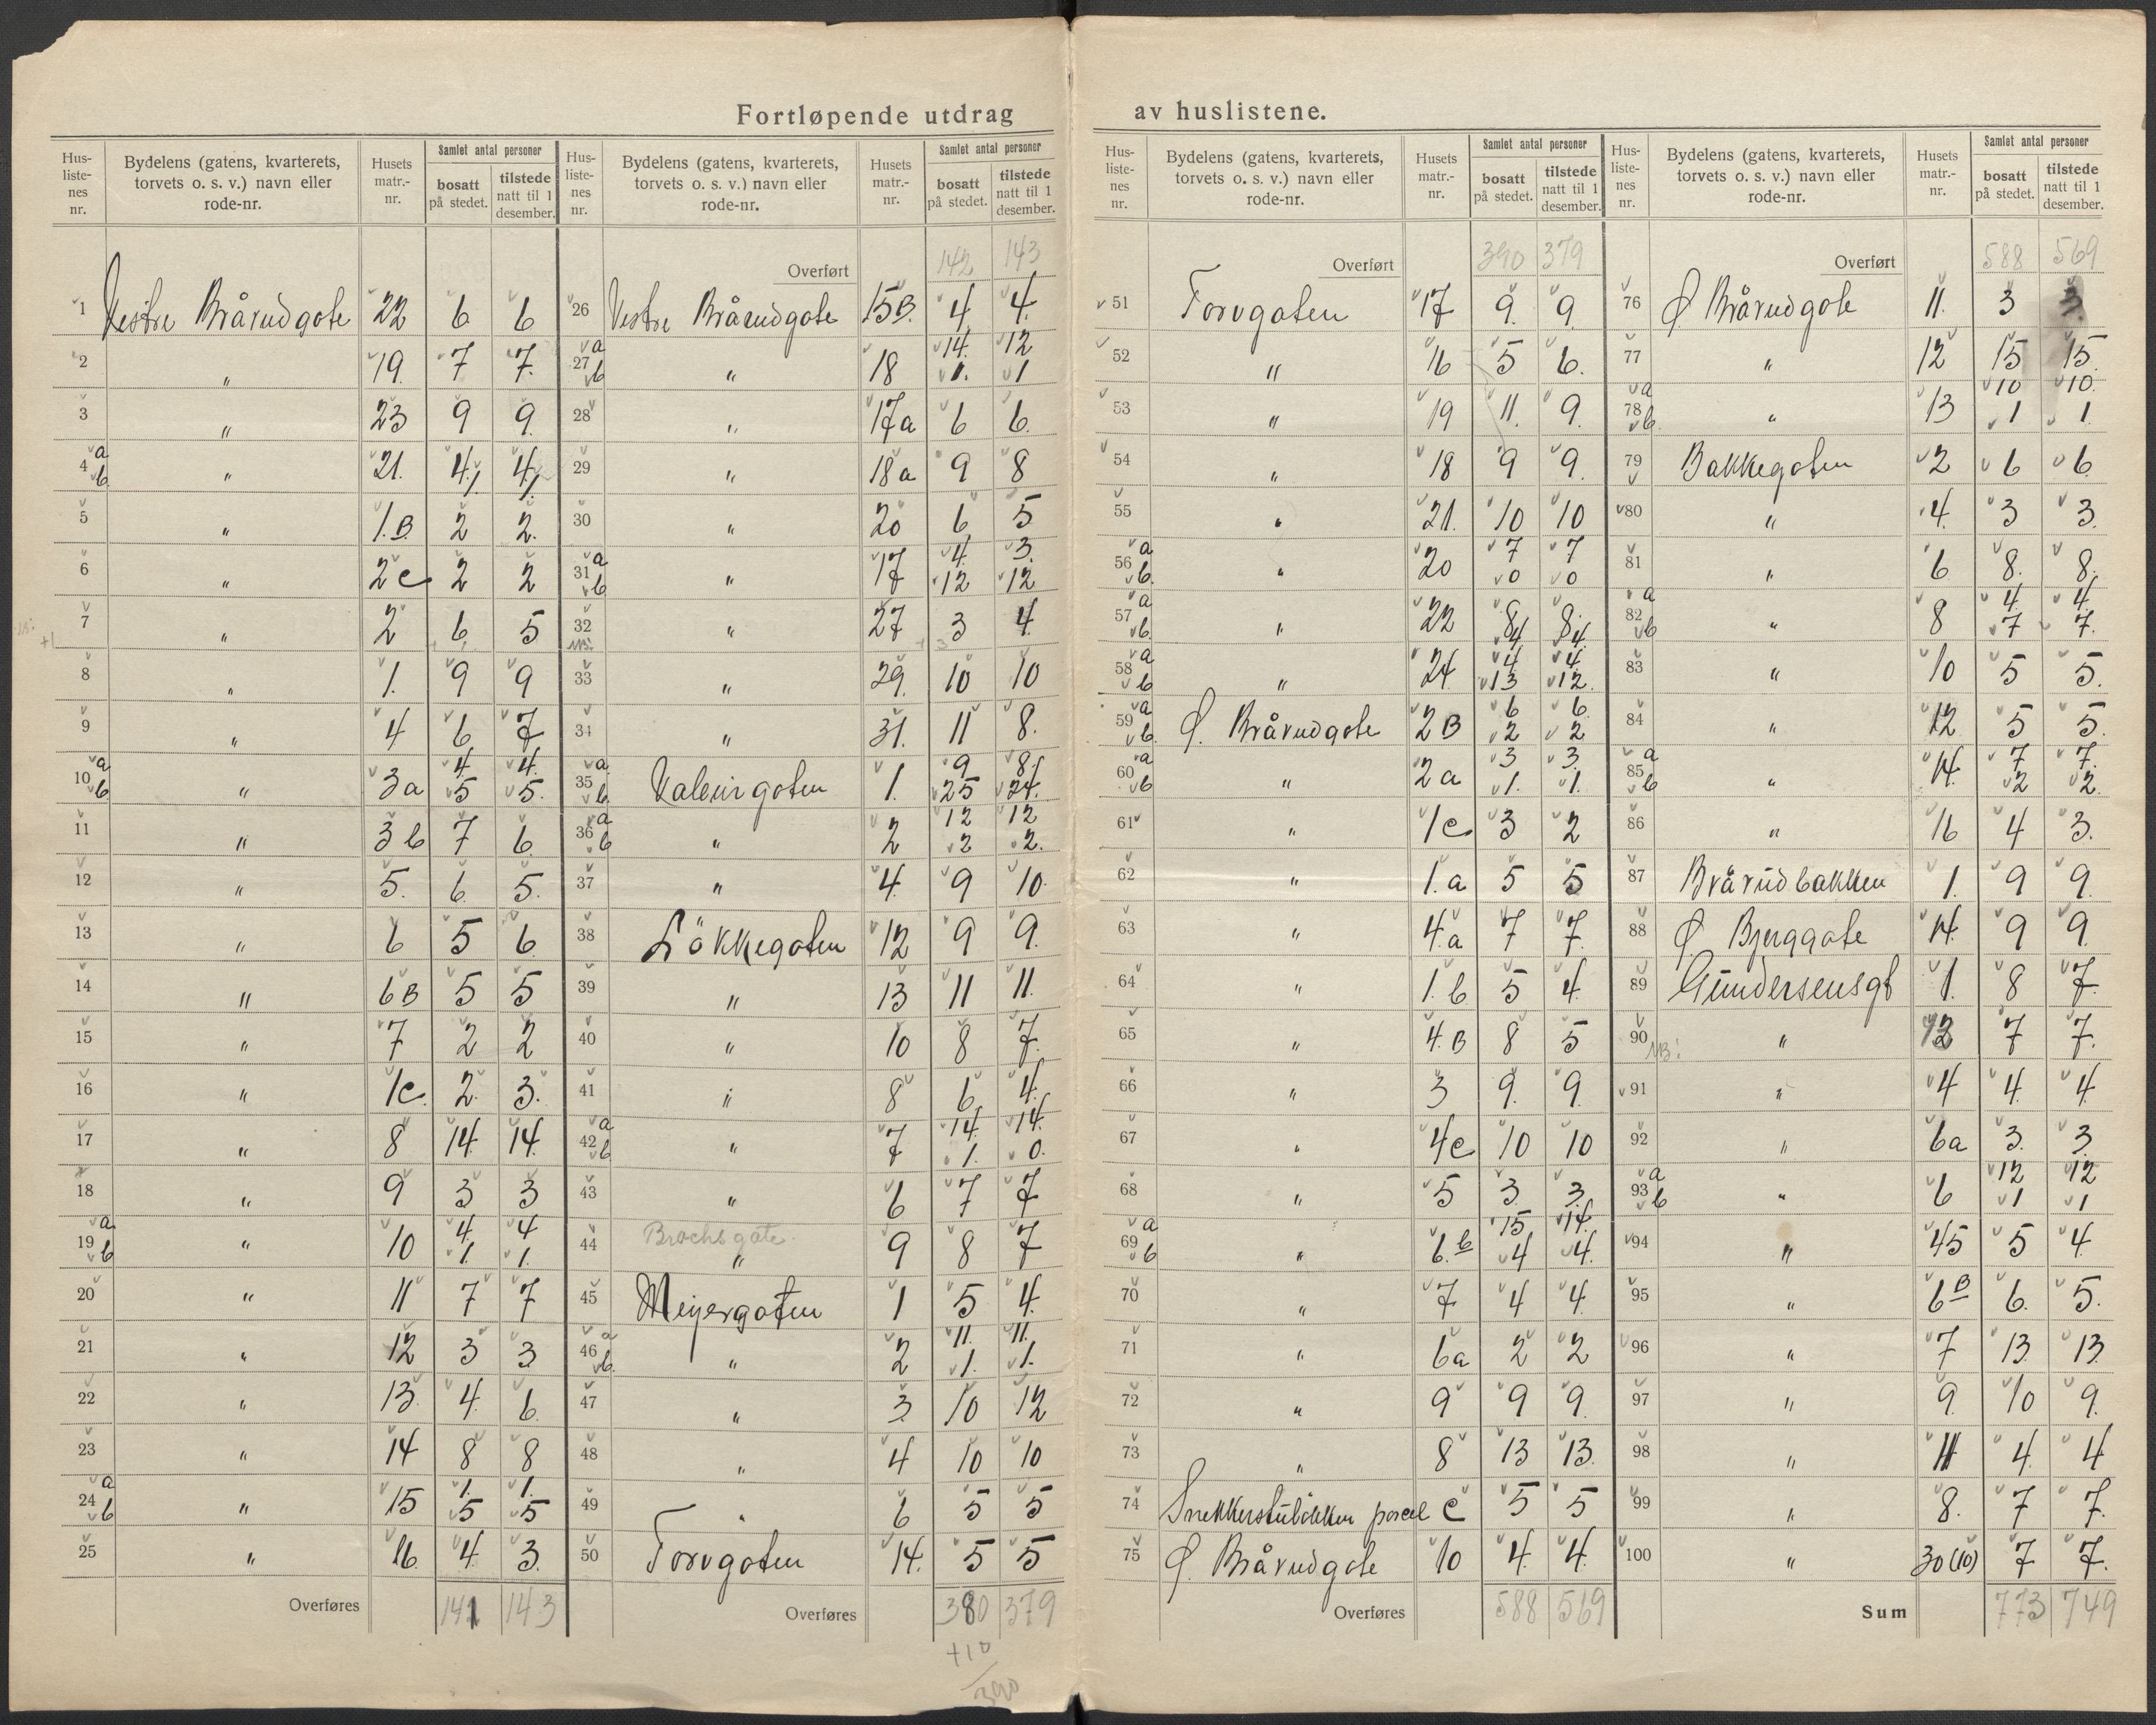 Fortløpende utdrag av huslistene.
Hus-liste-nes nr. | Bydelens (gatens, kvarterets, torvets o. s. v.) navn eller rode-nr. | Husets matr.-nr. | Samlet antal personer bosatt på stedet. | tilstede natt til 1 desember.
1 Vestre Brårudgate 22 6 6
2 " 19. 7 7.
3 " 23 9 9.
4 a b " 21. 4 1 4 1
5 " 1.B. 2 2.
6 " 2c 2 2
7 " 2 6 5
8 " 1. 9 9
9 " 4 6 7
10 a b " 3a 4. 5 4. 5.
11 " 3b 7 6.
12 " 5. 6. 5.
13 " 6 5 6.
14 " 6B 5 5
15 " 7 2 2
16 " 1c. 2. 3.
17 " 8 14. 14.
18 " 9 3 3
19 a b " 10 4. 1. 4 1.
20 " 11 7 7
21 " 12 3 3
22 " 13 4. 6.
23 " 14 8 8
24 a b " 15 1. 5 1. 5
25 " 16. 4. 3.
Overføres 141 143
Hus-liste-nes nr. | Bydelens (gatens, kvarterets, torvets o. s. v.) navn eller rode-nr. | Husets matr.-nr. | Samlet antal personer bosatt på stedet. | tilstede natt til 1 desember.
Overført 142 143
26 Vestre Brårudgate 15B. 4 4.
27 a b " 18 14. 1. 12 1
28 " 17a 6 6.
29 " 18a 9 8
30 " 20 6 5
31 a b " 17 4. 12 3. 12
32 " 27 3 4.
33 " 29. 10 10
34 " 31. 11 8.
35 a b Valeurgaten 1. 9 25 8 24.
36 a b " 2 12 2 12 2.
37 " 4. 9 10.
38 Lökkegaten 12 9 9.
39 " 13 11 11.
40 " 10 8 7.
41 " 8 6. 4.
42 a b " 7 14. 1. 14. 0.
43 " 6 7 7
44 Brochsgate " 9 8 7
45 Meyergaten 1 5 4.
46 a b " 2 11. 1. 11. 1.
47 " 3. 10 12
48 " 4 10 10
49 " 6 5 5
50 Torvgaten 14. 5 5
Overføres 380 379
+10
390
Hus-liste-nes nr. | Bydelens (gatens, kvarterets, torvets o. s. v.) navn eller rode-nr. | Husets matr.-nr. | Samlet antal personer bosatt på stedet. | tilstede natt til 1 desember.
Overført 390 379
51 Torvgaten 17 9. 9.
52 " 16 5 6.
53 " 19 11. 9.
54 " 18 9 9.
55 " 21. 10 10
56 a b " 20 7 0 7 0
57 a b " 22 8 4 8. 4.
58 a b " 24 4 13 4. 12.
59 a b Ø. Brårudgate 2B 6 2 6. 2
60 a b " 2a 3 1. 3. 1.
61 " 1c 3 2
62 " 1.a 5 5
63 " 4.a 7 7.
64 " 1.b 5 4.
65 " 4.B 8 5
66 " 3 9. 9.
67 " 4c 10 10
68 " 5 3. 3.
69 a b " 6.b 15 4 14. 4.
70 " 7 4 4.
71 " 6a 2 2
72 " 9 9 9.
73 " 8 13 13.
74 Snekkerstuløkken parcel C 5 5
75 Ø. Brårudgate 10 4. 4.
Overføres 588 569
Hus-liste-nes nr. | Bydelens (gatens, kvarterets, torvets o. s. v.) navn eller rode-nr. | Husets matr.-nr. | Samlet antal personer bosatt på stedet. | tilstede natt til 1 desember.
Overført 588 569
76 Ø. Brårudgate 11. 3 3.
77 " 12 15 15.
78 a b " 13 10 1 10. 1.
79 Bakkegaten 2 6 6.
80 " 4. 3 3.
81 " 6 8. 8.
82 a b " 8 4. 7 4. 7.
83 " 10 5 5.
84 " 12 5 5.
85 a b " 14. 7 2 7. 2.
86 " 16 4 3.
87 Brårudbakken 1. 9 9.
88 Ø. Bjerggate 14. 9 9.
89 Gundersensgt 1. 8 7.
90 NB! " 2 7 7.
91 " 4 4. 4.
92 " 6a 3. 3.
93 a b " 6 12 1 12 1
94 " 45 5 4.
95 " 6B 6. 5.
96 " 7 13. 13.
97 " 9. 10 9.
98 " 11 4. 4
99 " 8. 7 7.
100 " 30(10) 7 7.
Sum 773 749